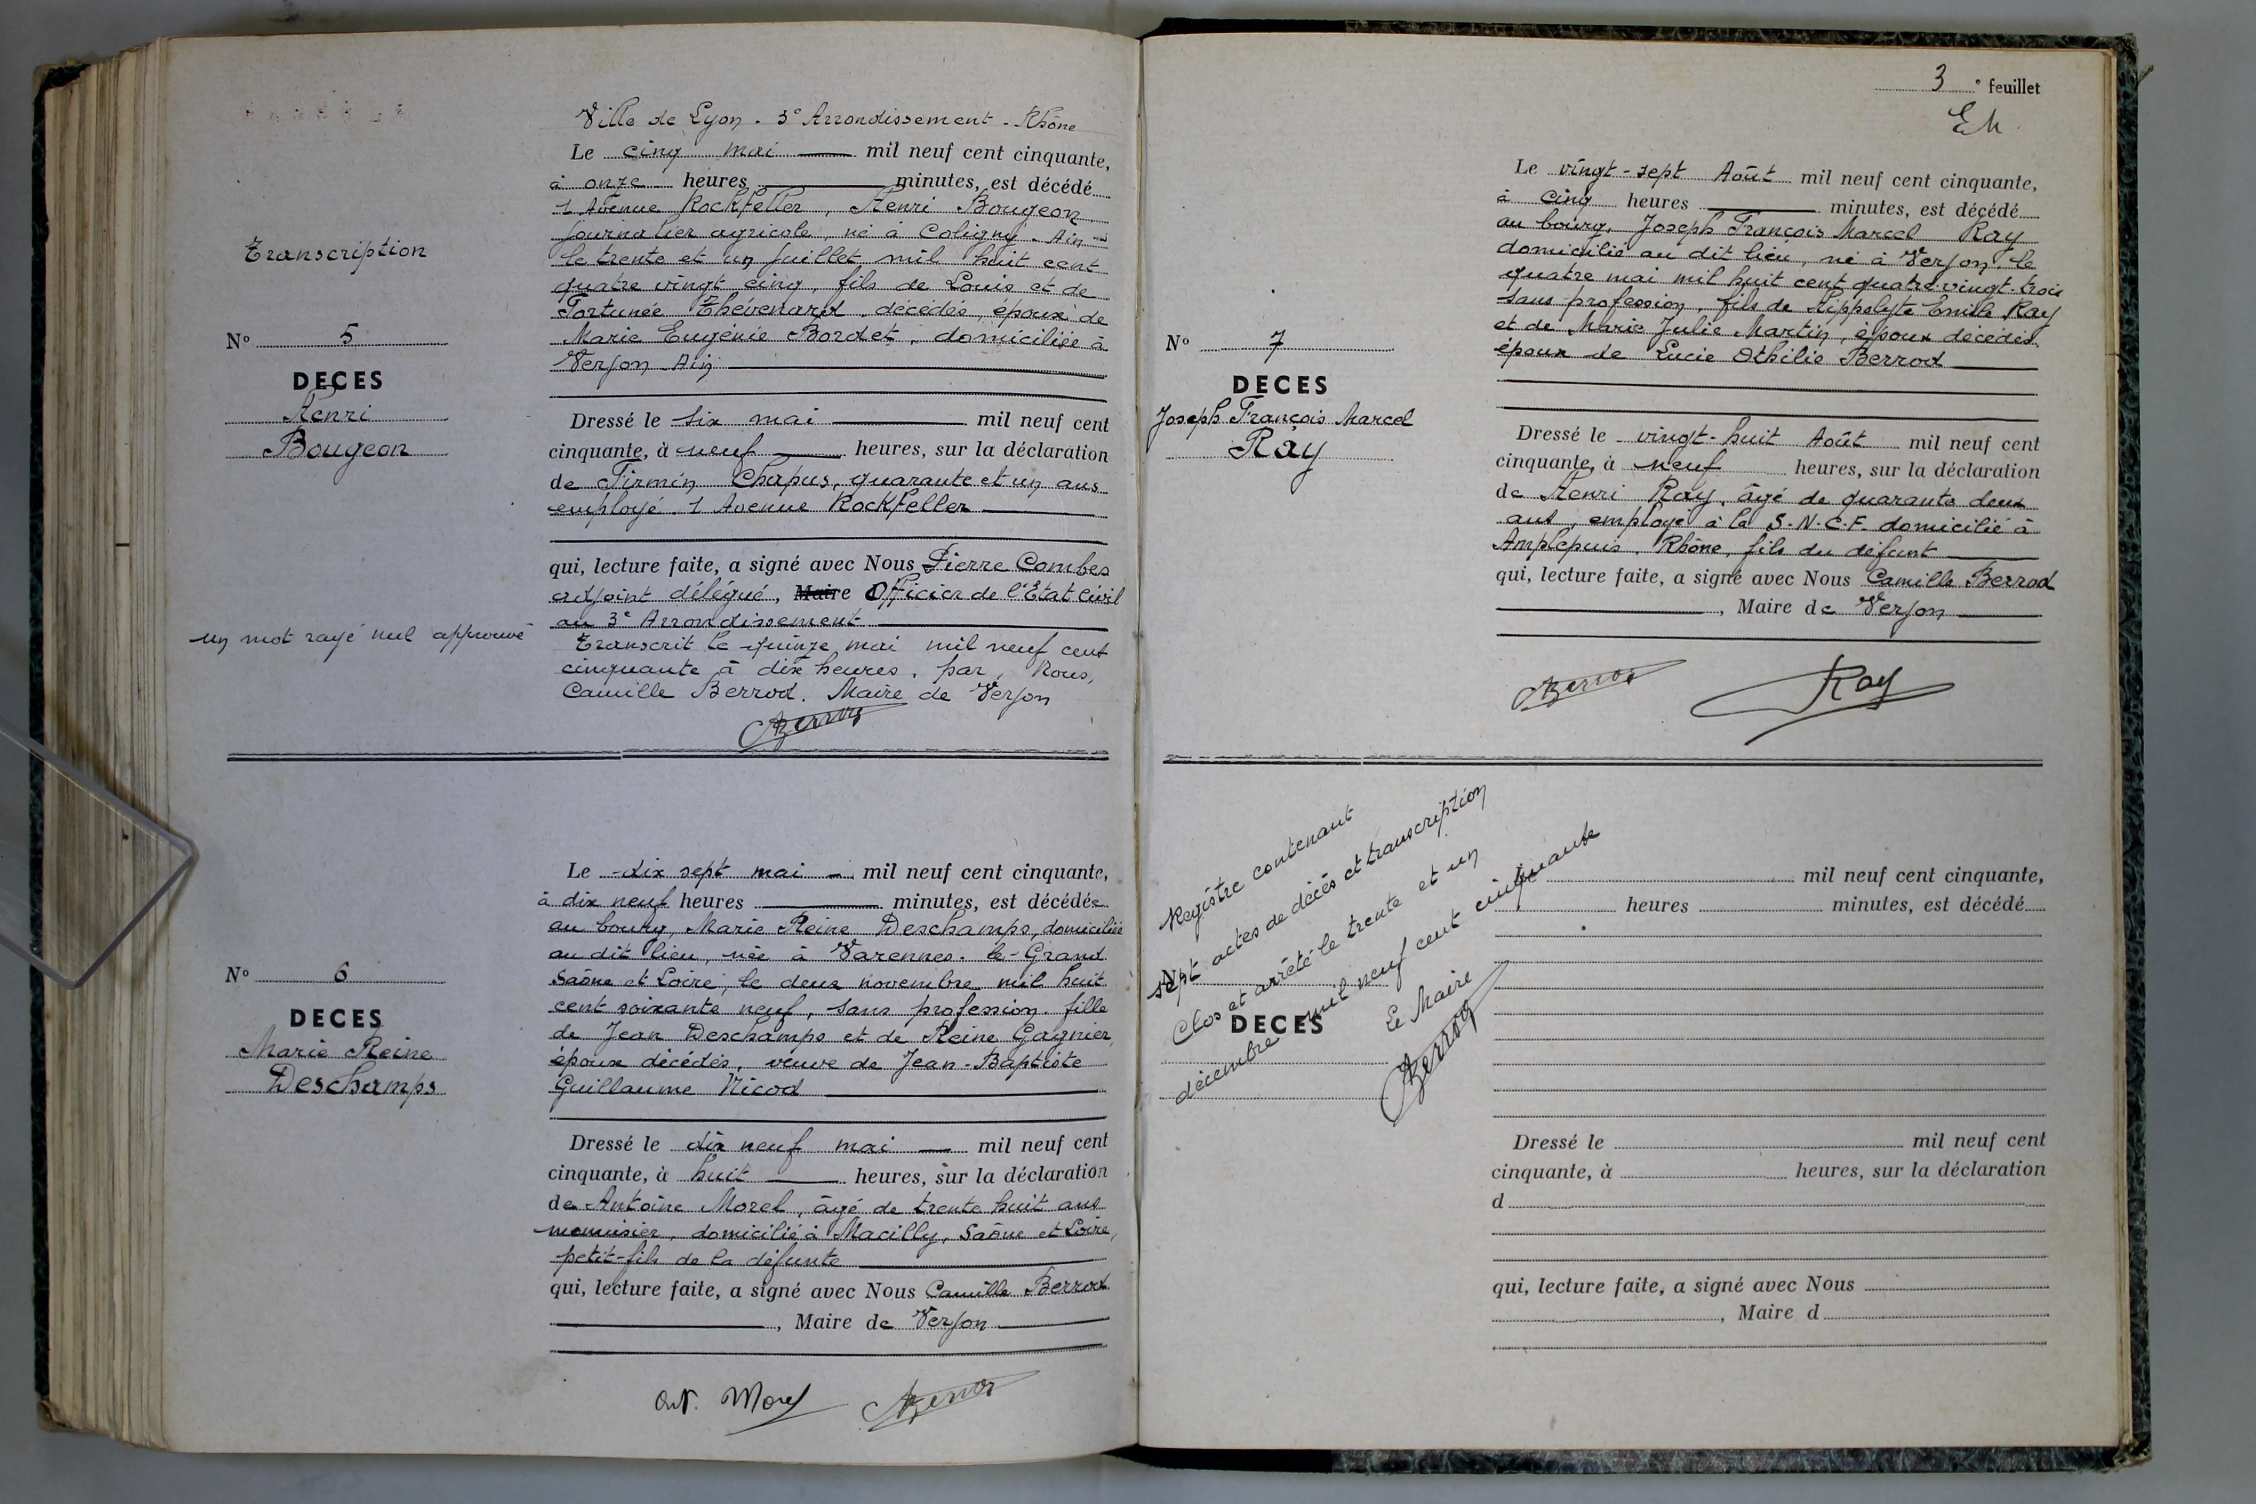 Ville de Lyon. 3e Arrondissement. Rhône
Le cinq mai mil neuf cent cinquante,
à onze heures minutes, est décédé
1 Avenue Rockfeller, Henri Bougeon
journalier agricole, né à Coligny. Ain
le trente et un juillet mil huit cent
quatre vingt cinq, fils de Louis et de
Fortunée Thévenard, décédés, époux de
Marie Eugénie Bordet, domiciliée à
Verjon. Ain
Transcription
N° 5
DECES
Henri
Bougeon
Dressé le six mai mil neuf cent
cinquante, à neuf heures, sur la déclaration
de Firmin Chapus, quarante et un ans
employé. 1 Avenue Rockfeller
qui, lecture faite, a signé avec Nous Pierre Combes
adjoint délégué, Maire Officier de l'État Civil
au 3e Arrondissement
un mot rayé nul approuvé
Transcrit le quinze mai mil neuf cent
cinquante à dix heures. par, Nous,
Camille Berrod. Maire de Verjon
Berrod
Le dix sept mai mil neuf cent cinquante,
à dix neuf heures minutes, est décédée
au bourg, Marie Reine Deschamps, domiciliée
au dit lieu, née à Varennes-le-Grand
Saône et Loire, le deux novembre mil huit
cent soixante neuf, sans profession. fille
de Jean Deschamps et de Reine Gagnier,
époux décédés, veuve de Jean-Baptiste
Guillaume Nicod
N° 6
DECES
Marie Reine
Deschamps
Dressé le dix neuf mai mil neuf cent
cinquante, à huit heures, sur la déclaration
de Antoine Morel, âgé de trente huit ans
menuisier, domicilié à Macilly, Saône et Loire,
petit-fils de la défunte
qui, lecture faite, a signé avec Nous Camille Berrod
, Maire de Verjon
Ant. Morel Berrod
3 e feuillet
EM
Le vingt-sept Août mil neuf cent cinquante,
à cinq heures minutes, est décédé
au bourg, Joseph François Marcel Ray
domicilié au dit lieu, né à Verjon. le
quatre mai mil huit cent quatre-vingt-trois
sans profession, fils de Hippolyte Emile Ray
et de Marie Julie Martin, époux décédés.
époux de Lucie Othilie Berrod
N° 7
DECES
Joseph François Marcel
Ray
Dressé le vingt-huit Août mil neuf cent
cinquante, à neuf heures, sur la déclaration
de Henri Ray, âgé de quarante deux
ans, employé à la S.N.C.F. domicilié à
Amplepuis. Rhône, fils du défunt
qui, lecture faite, a signé avec Nous Camille Berrod
, Maire de Verjon
Berrod Ray
Registre contenant
sept actes de décès et transcription
Clos et arrêté le trente et un
décembre mil neuf cent cinquante
Le Maire
Berrod
N°
DECES
Le mil neuf cent cinquante,
heures minutes, est décédé
Dressé le mil neuf cent
cinquante, à heures, sur la déclaration
d
qui, lecture faite, a signé avec Nous
, Maire d